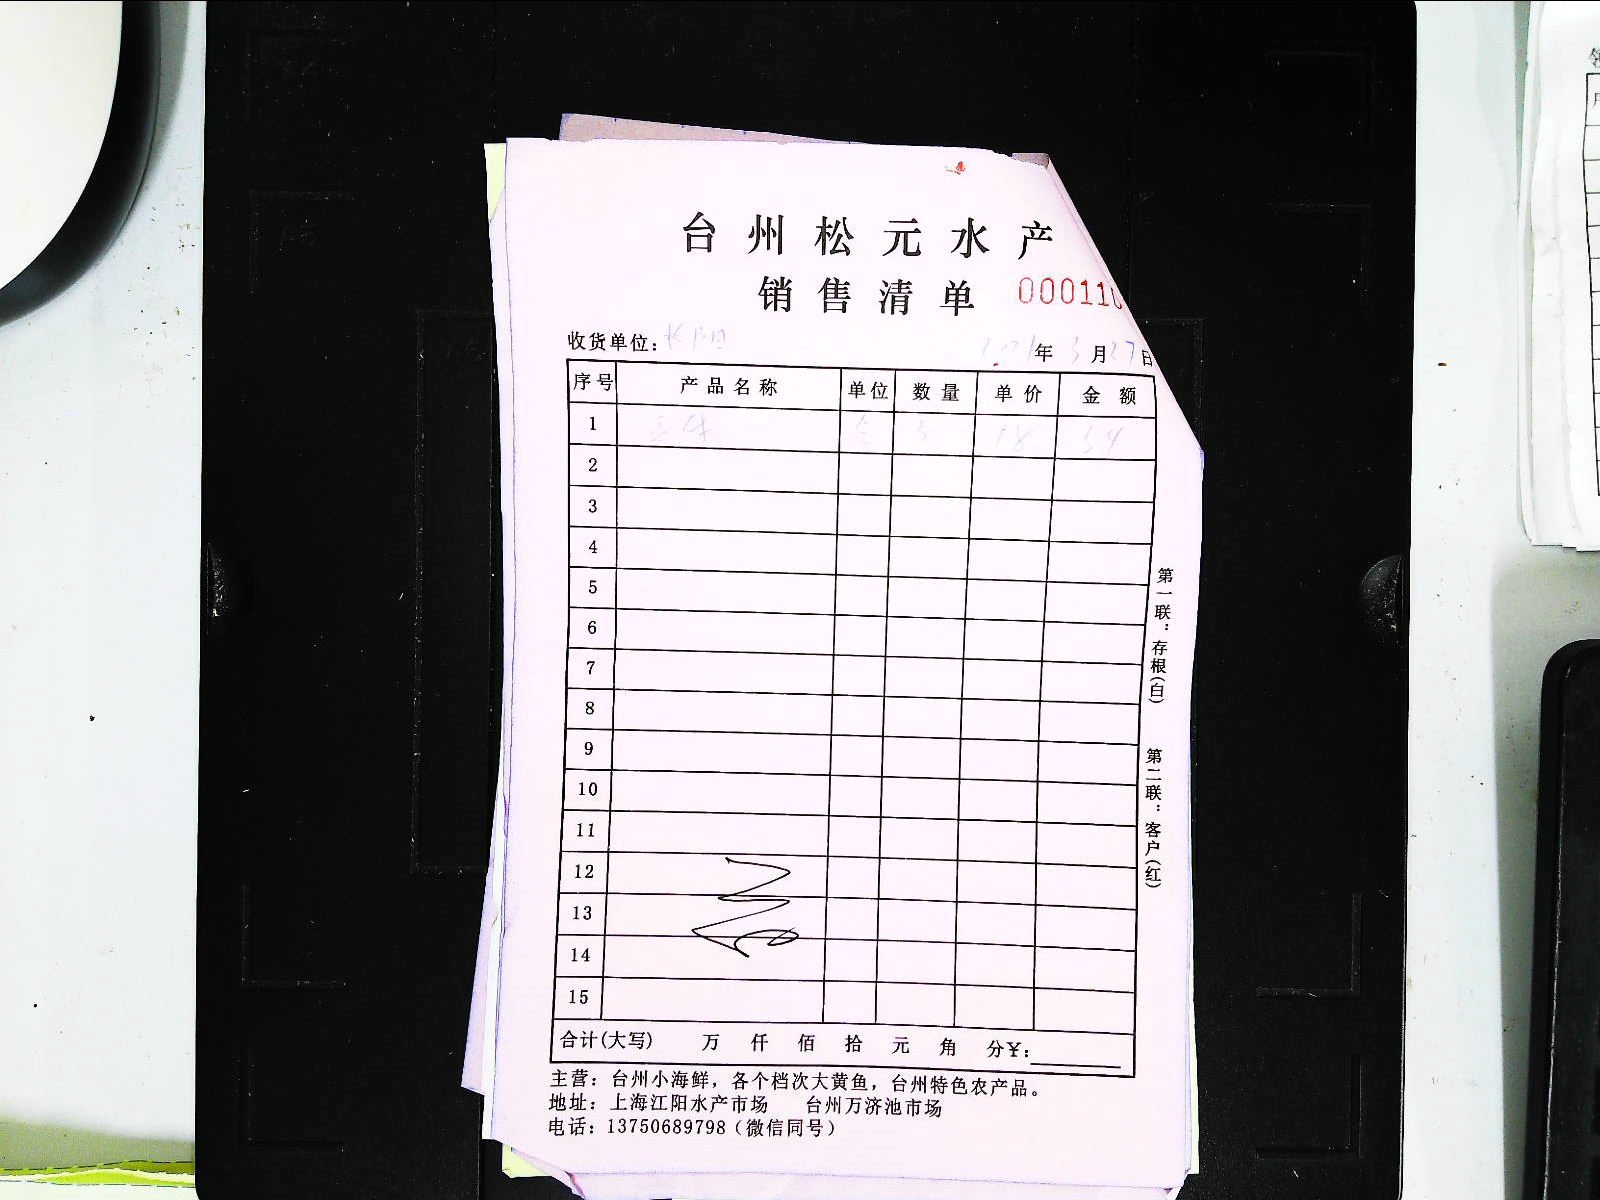 台州松元水产
销售清单 000110
收货单位： 2021年3月27日
序号 产品名称 单位 数量 单价 金额
1 3 18 54
2
3
4
5
6
7
8
9
10
11
12
13
14
15
合计(大写) 万 仟 佰 拾 元 角 分¥:
主营：台州小海鲜，各个档次大黄鱼，台州特色农产品。
地址：上海江阳水产市场 台州万济池市场
电话：13750689798（微信同号）
第一联：存根(白)
第二联：客户(红)